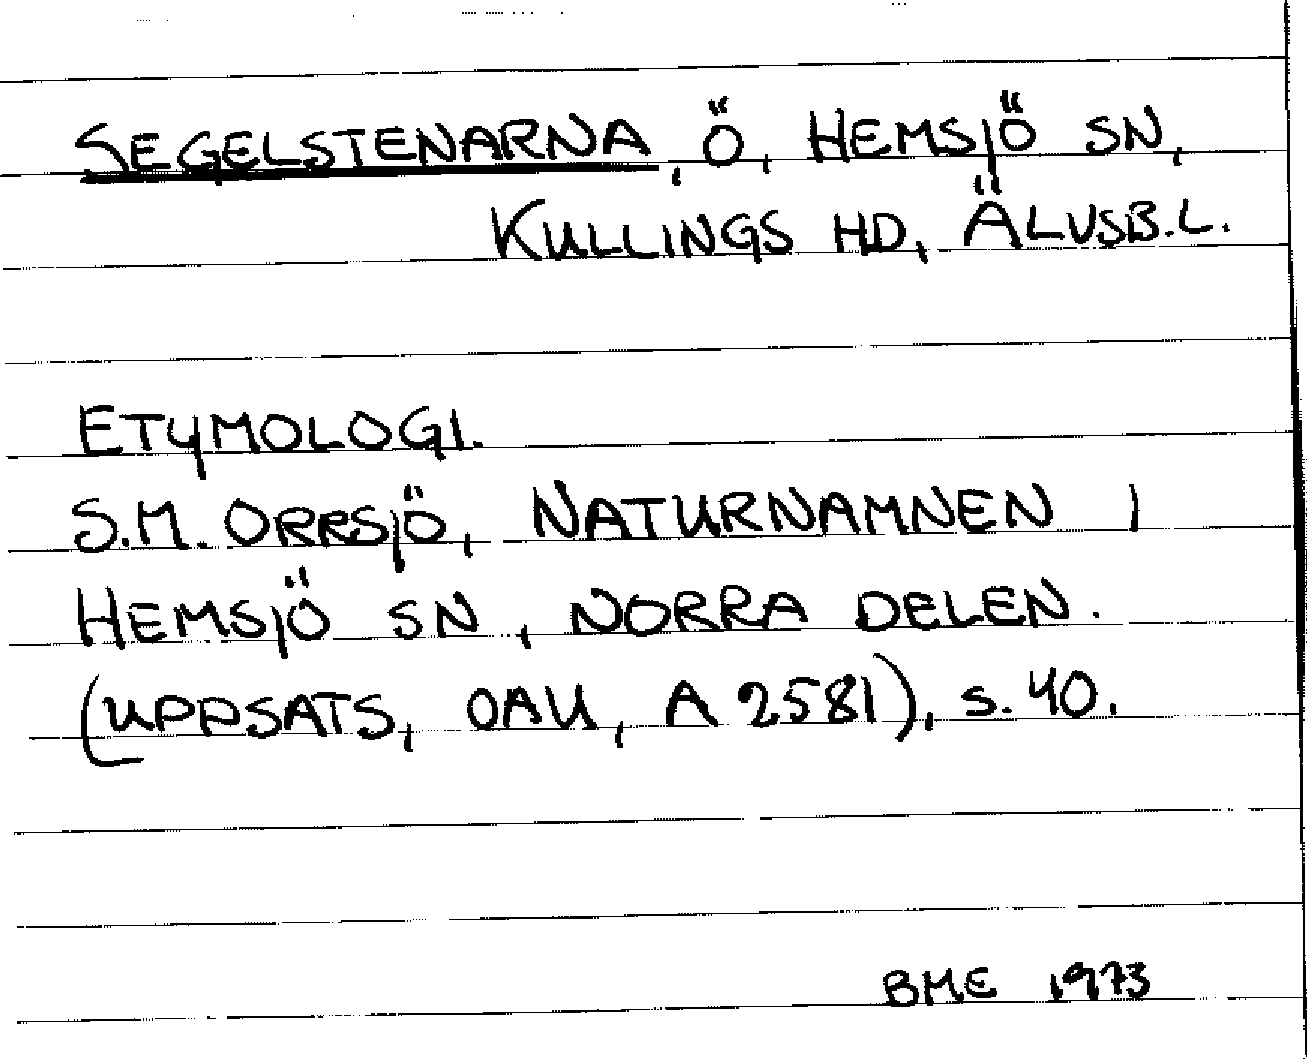 SEGELSTENARNA, Ö, HEMSJÖ SN,
KULLINGS HD, ÄLVSB.L.
ETYMOLOGI.
S.M. ORRSJÖ, NATURNAMNEN I
HEMSJÖ SN, NORRA DELEN.
(UPPSATS, OAU, A 2581), s. 40.
BME 1973